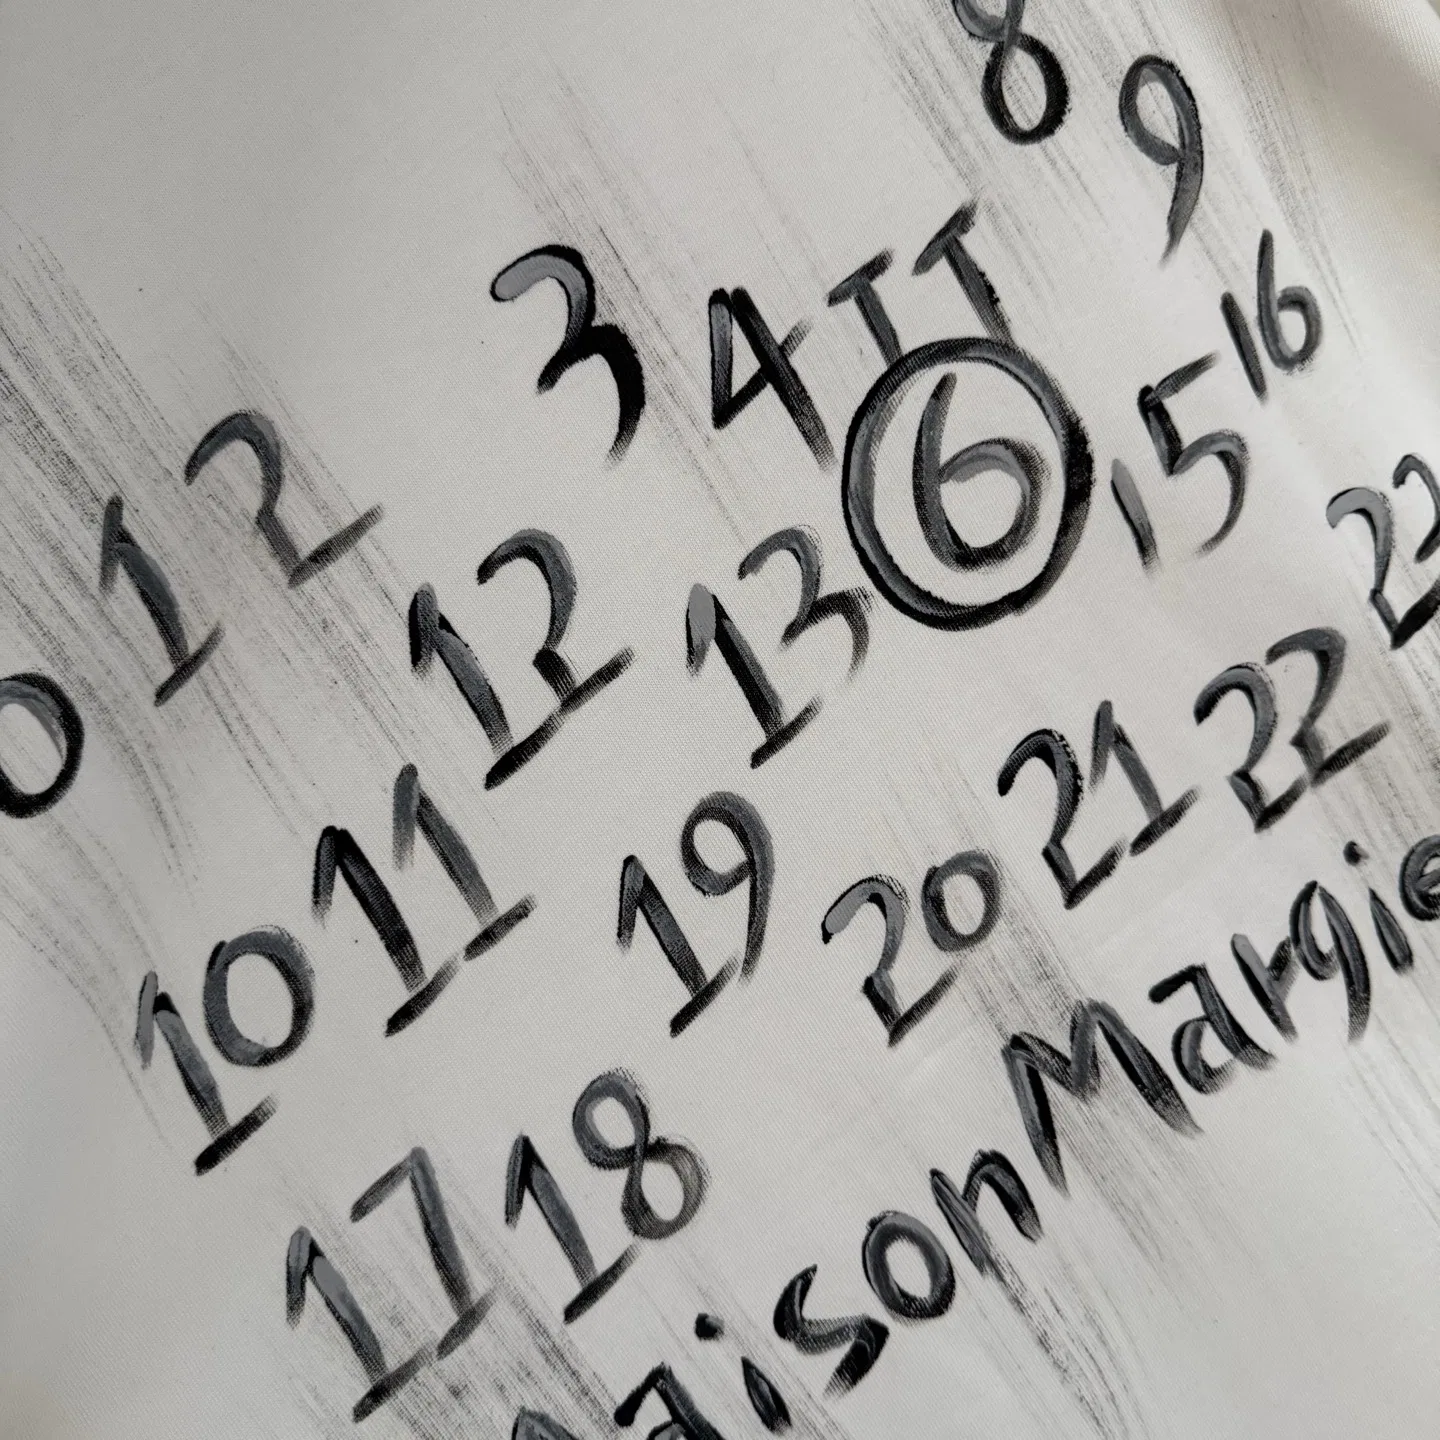 0 1 2 3 4 8 9
10 11 12 13 6 15 16
17 18 19 20 21 22 23
aison Margie